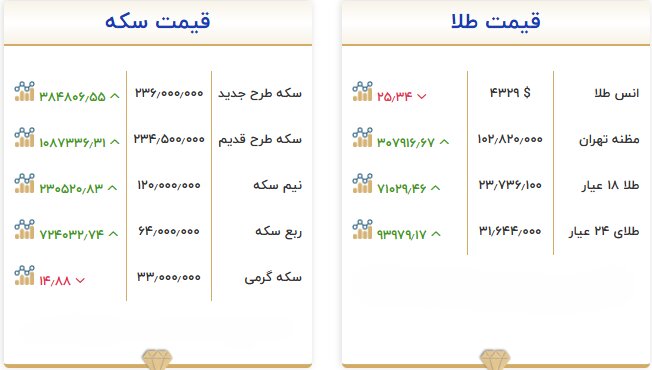 قیمت طلا
انس طلا ۴۳۲۹ $ ۲۵٫۳۴
مظنه تهران ۱۰۲٫۸۲۰٫۰۰۰ ۳۰۷۹۱۶٫۶۷
طلا ۱۸ عیار ۲۳٫۷۳۶٫۱۰۰ ۷۱۰۲۹٫۴۶
طلای ۲۴ عیار ۳۱٫۶۴۴٫۰۰۰ ۹۳۹۷۹٫۱۷
قیمت سکه
سکه طرح جدید ۲۳۶٫۰۰۰٫۰۰۰ ۳۸۴۸۰۶٫۵۵
سکه طرح قدیم ۲۳۴٫۵۰۰٫۰۰۰ ۱۰۸۷۳۳۶٫۳۱
نیم سکه ۱۲۰٫۰۰۰٫۰۰۰ ۲۳۰۵۲۰٫۸۳
ربع سکه ۶۴٫۰۰۰٫۰۰۰ ۷۲۴۰۳۲٫۷۴
سکه گرمی ۳۳٫۰۰۰٫۰۰۰ ۱۴٫۸۸